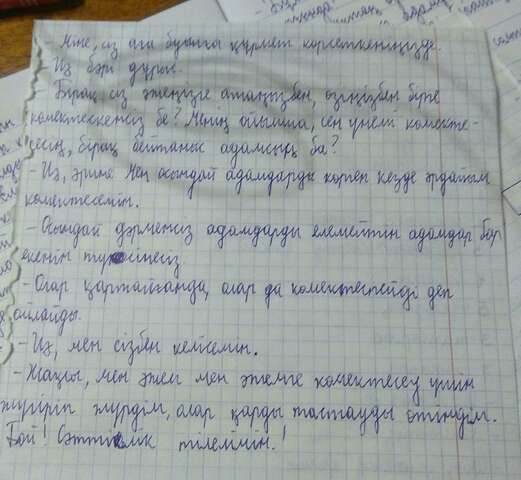 - Міне, сіз аға буынға құрмет көрсеткеніңізде.
Иә бәрі дұрыс.
- Бірақ сіз әжеңізге атаңызбен, өзіңізбен бірге
көмектескенсіз бе? Менің ойымша, сен үнемі көмекте-
сесің, бірақ бейтаныс адамсық ба?
- Иә, әрине мен осындай адамдарды көрген кезде әрдайым
көмектесемін.
- Осындай дәрменсіз адамдарды елемейтін адамдар бар
екенін түсінесіз
- Олар қартайғанда, олар да көмектеспейді деп
ойлайды.
- Иә, мен сізбен келісемін.
- Жақсы, мен әжем мен әтемге көмектесу үшін
жүгіріп жүрдім, олар қарды тастауды өтінді.
Бай! Сәттілік тілеймін!